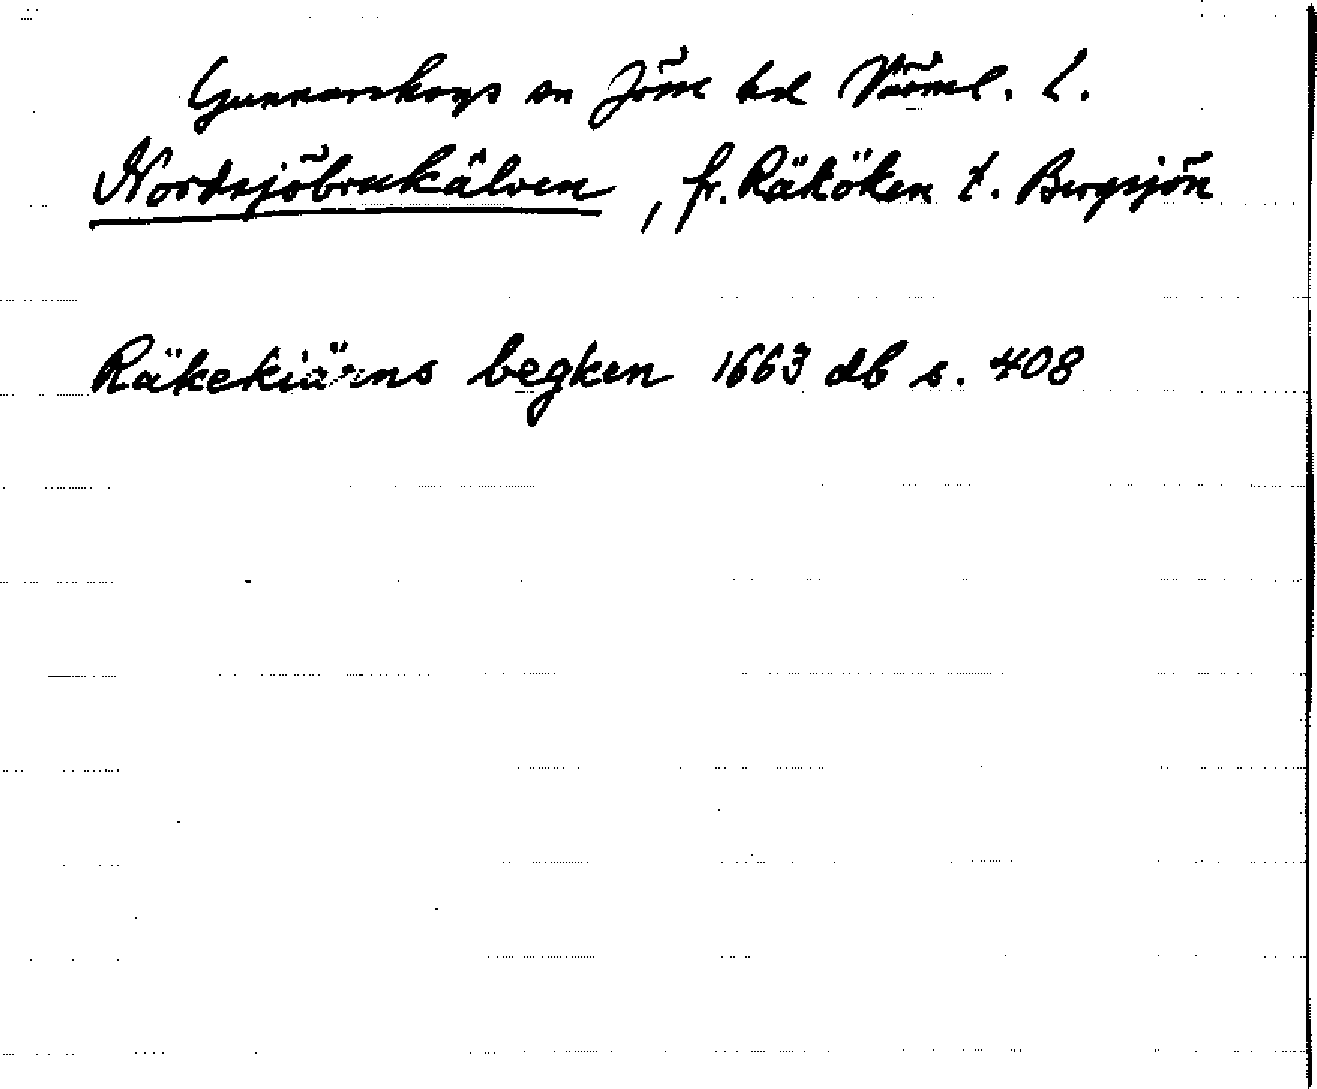 Gunnarskogs sn Jösse hd Värml. l.
Nordsjöbrukälven, fr. Räköken t. Bergsjön
Räkekiärns begken 1663 db s. 408